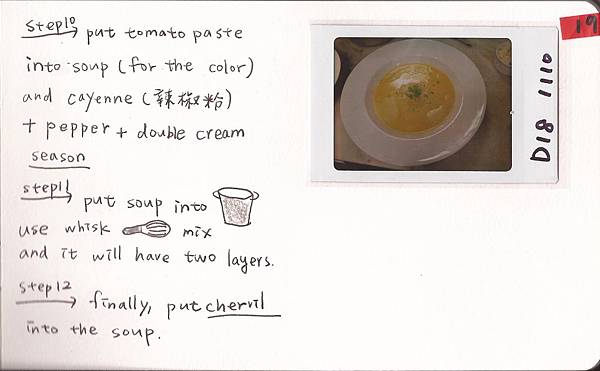 step10 put tomato paste
into soup (for the color)
and cayenne (辣椒粉)
+ pepper + double cream
season
step11 put soup into
use whisk mix
and it will have two layers.
step12 finally, put chervil
into the soup.
D18 1110
19